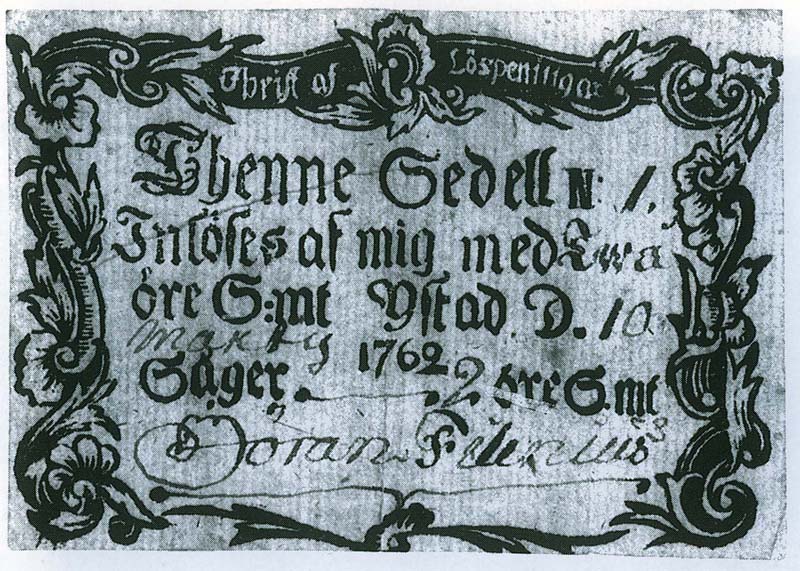 Brist af Löspenningar
Thenne Sedell N: 1.
Inlöses af mig med Twå
öre S:mt Ystad D. 10
Marty 1762
Säger 2 öre S.mt
Göran